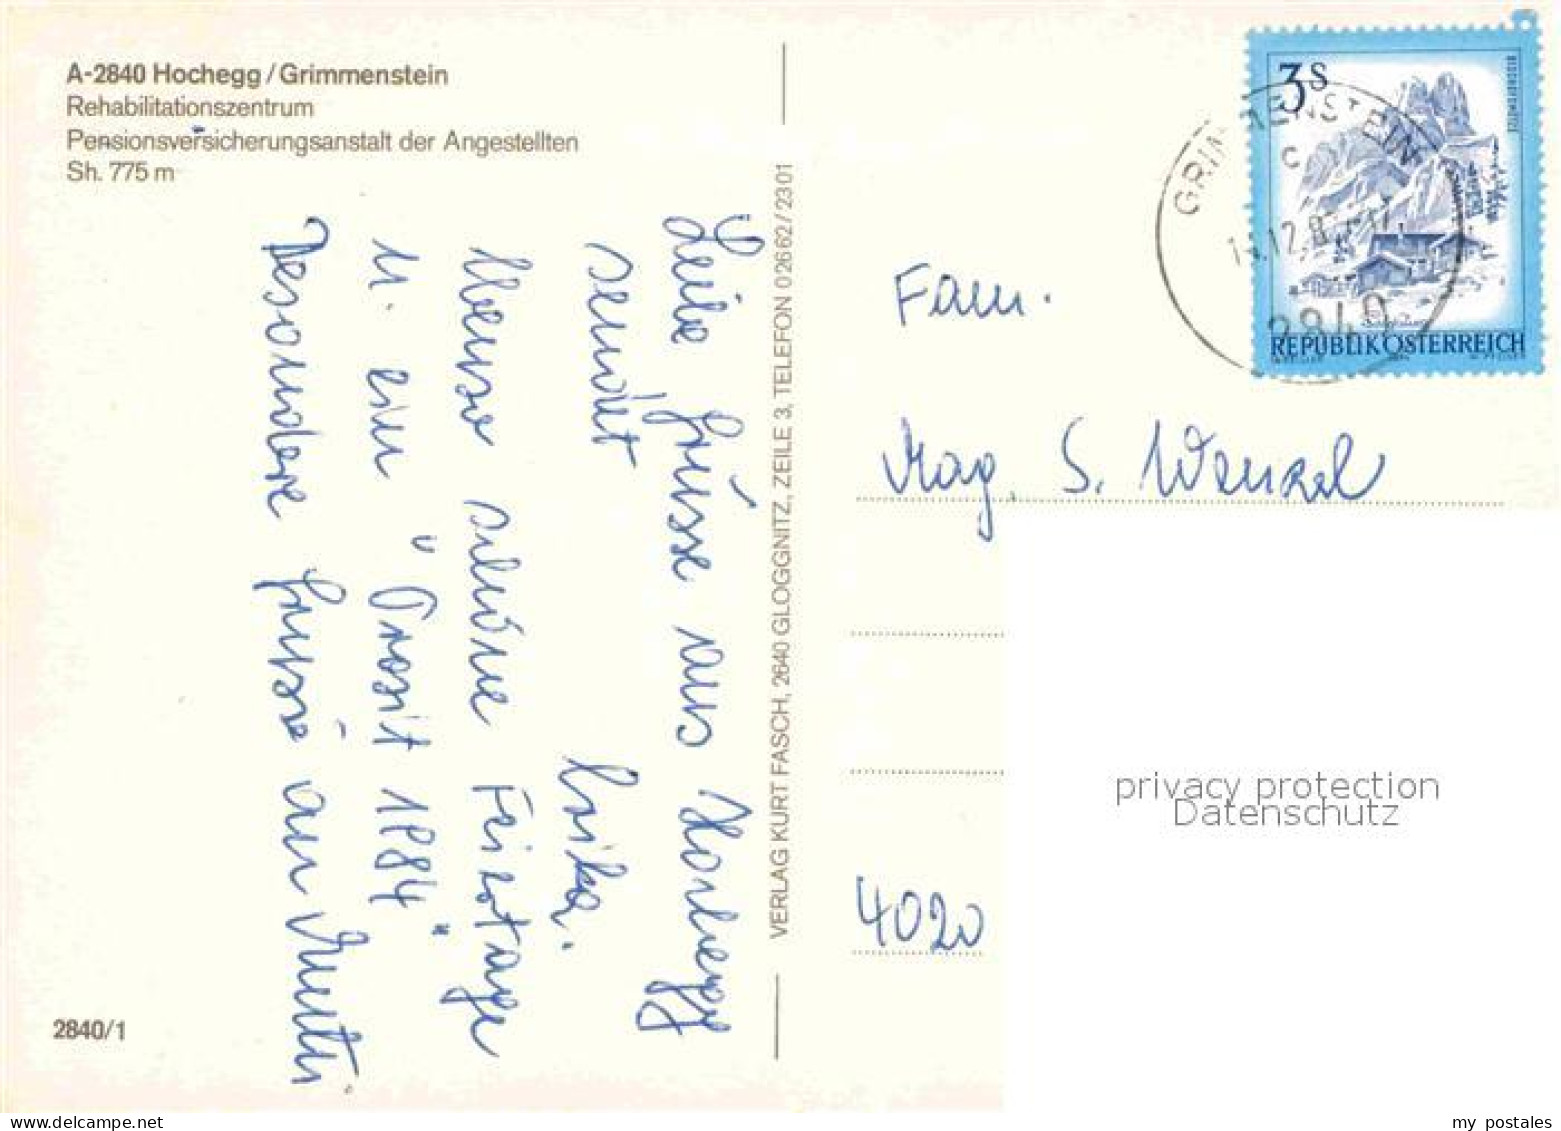 A-2840 Hochegg/Grimmenstein
Rehabilitationszentrum
Pensionsversicherungsanstalt der Angestellten
Sh. 775 m
Liebe Grüsse aus Hochegg
sendet
Erika.
Ebenso schöne Feiertage
u. ein "Prosit 1984"
Besondere Grüsse an Mutti
2840/1
VERLAG KURT FASCH, 2640 GLOGGNITZ, ZEILE 3, TELEFON 02662/2301
3 S
REPUBLIK ÖSTERREICH
GRIMMENSTEIN
C
2840
Fam.
Mag. S. Wenzel
4020
privacy protection
Datenschutz
my postales